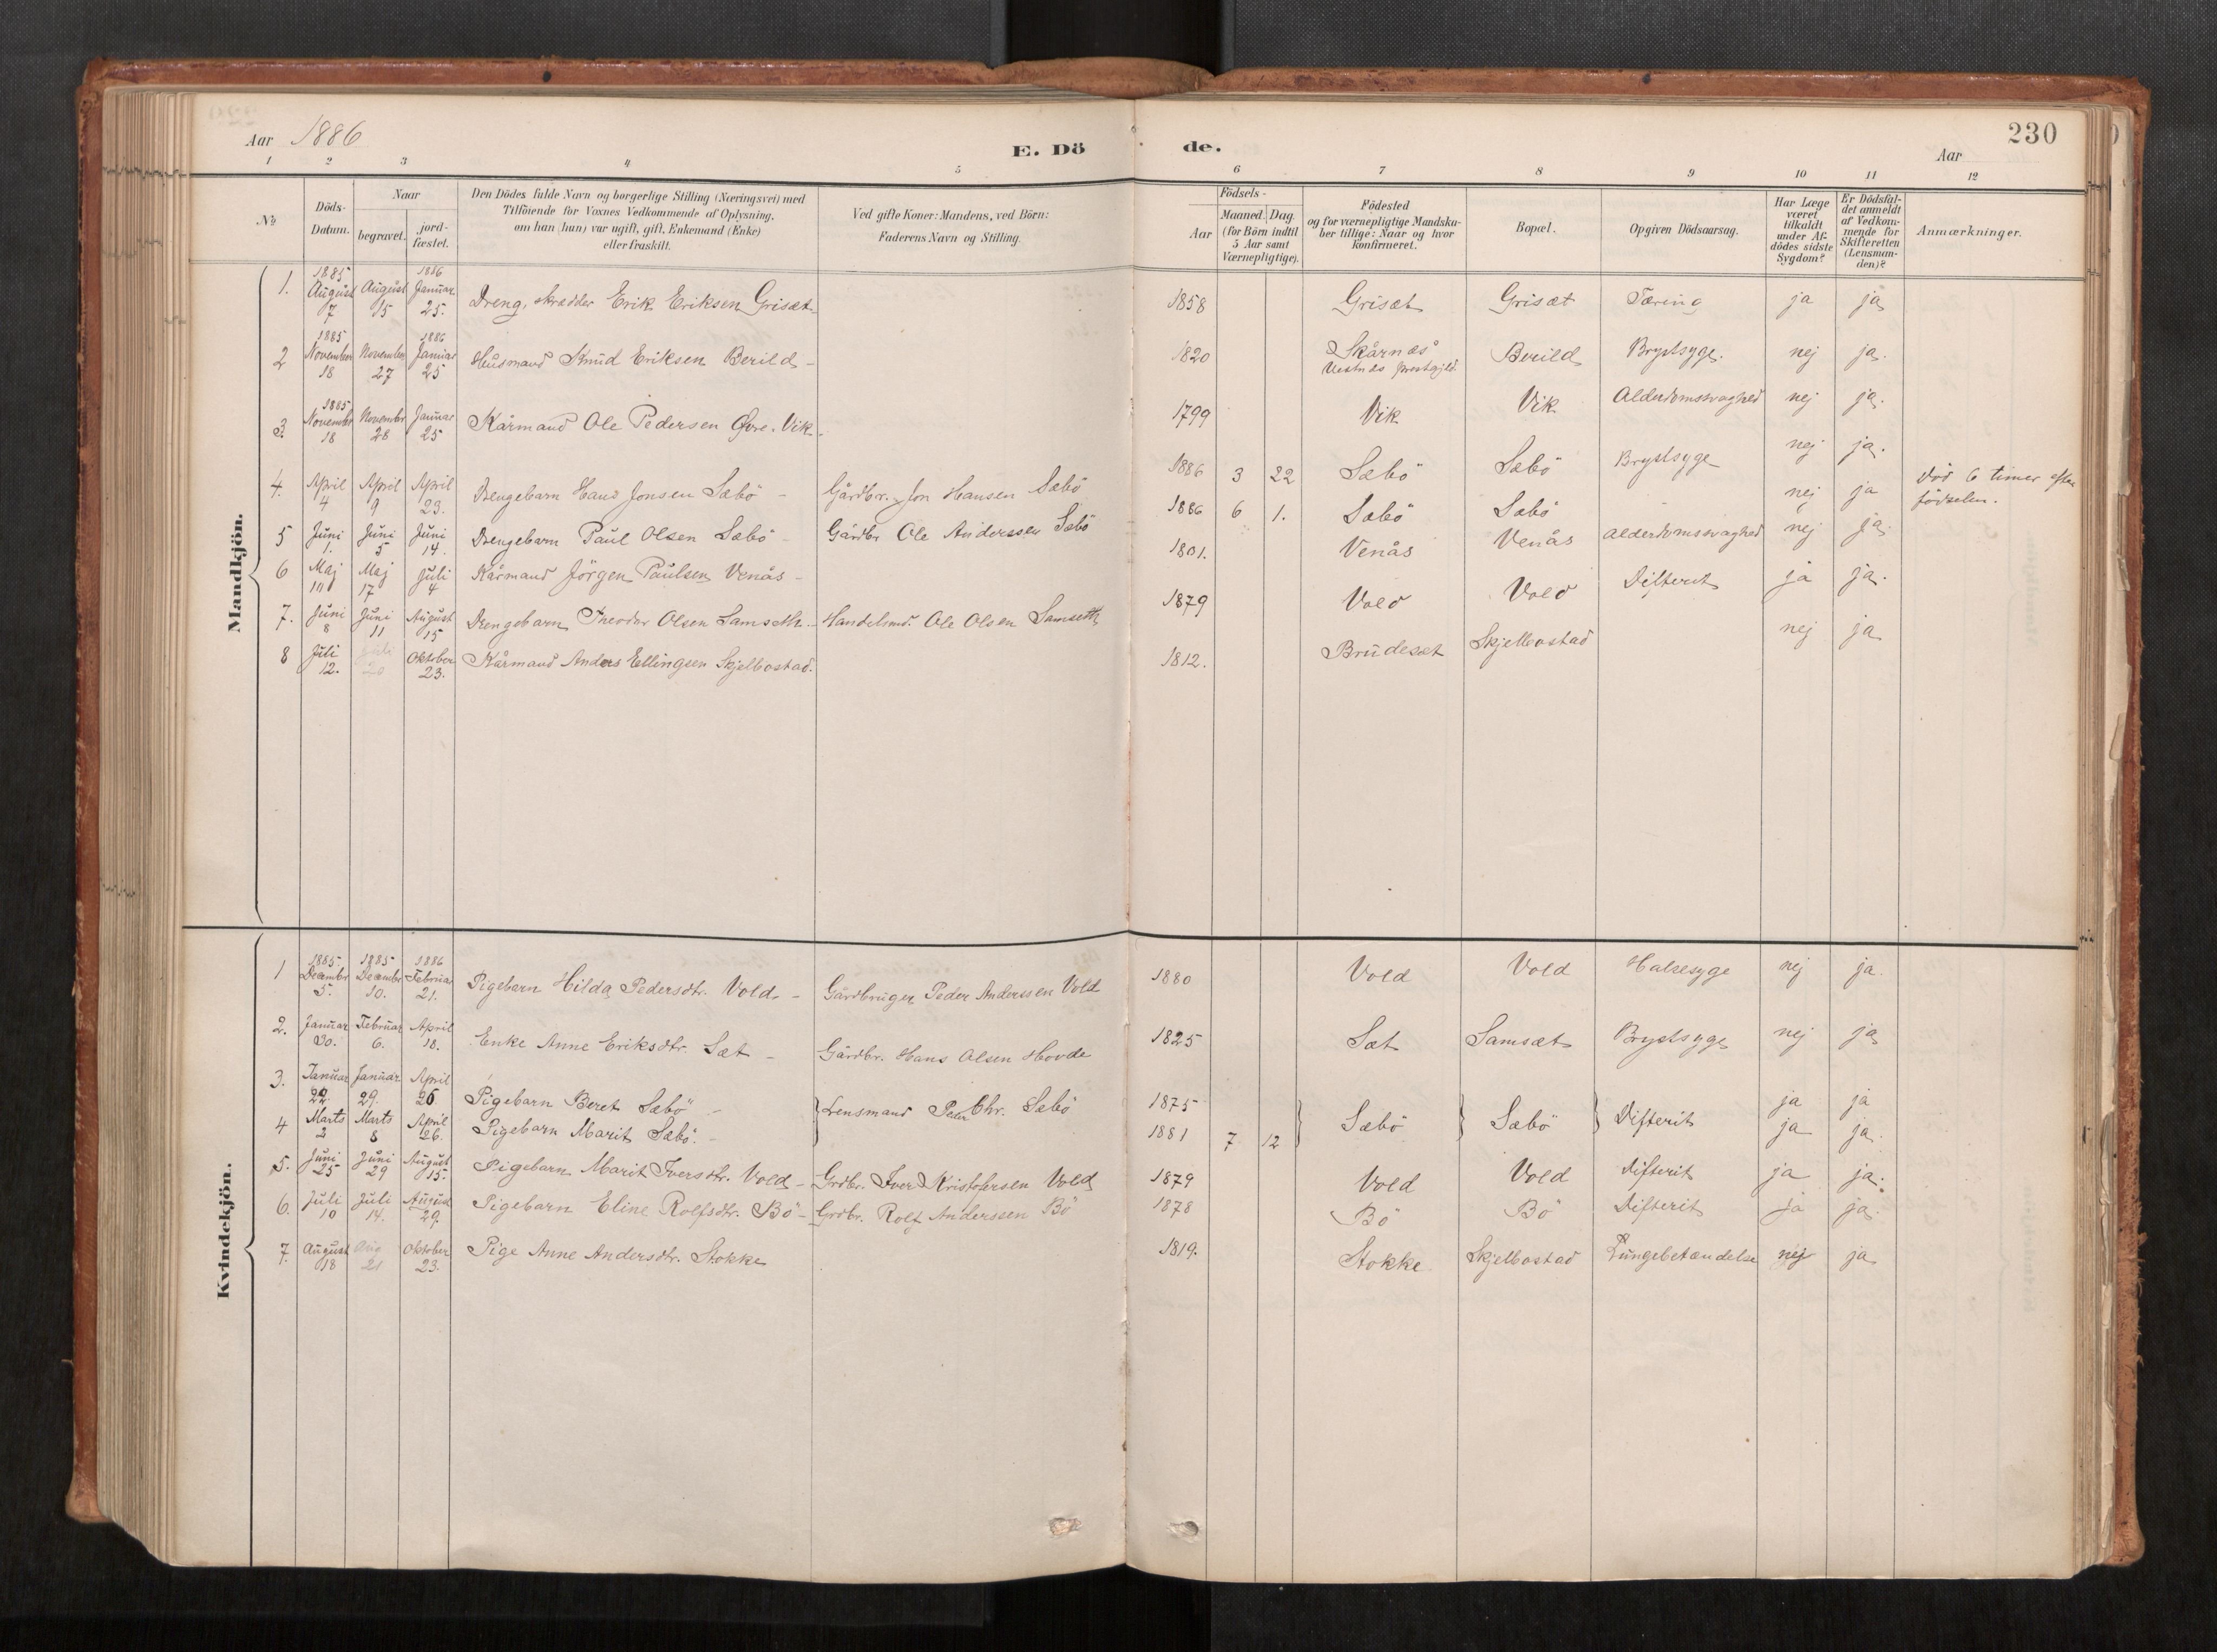 Aar 1886
E. Dö
de.
Aar
230
1 2 3 4 5 6 7 8 9 10 11 12
№
Döds-
Datum.
Naar
begravet.
jord-
fæstet.
Den Dödes fulde Navn og borgerlige Stilling (Næringsvei) med
Tilföiende for Voxnes Vedkommende af Oplysning,
om han (hun) var ugift, gift, Enkemand (Enke)
eller fraskilt.
Ved gifte Koner: Mandens, ved Börn:
Faderens Navn og Stilling.
Födsels-
Aar
Maaned. Dag.
(for Börn indtil
5 Aar samt
Værnepligtige).
Födested
og for værnepligtige Mandska-
ber tillige: Naar og hvor
konfirmeret.
Bopæl.
Opgiven Dödsaarsag.
Har Læge
været
tilkaldt
under Af-
dödes sidste
Sygdom?
Er Dödsfal-
det anmeldt
af Vedkom-
mende for
Skifteretten
(Lensman-
den)?
Anmærkninger.
Mandkjön.
1. 1885 August 7 August 15 1886 Januar 25. Dreng, skrædder Erik Eriksen Grisæt. 1858 Grisæt Grisæt Tæring ja ja
2 1885 November 18 November 27 1886 Januar 25 Husmand Knud Eriksen Berild - 1820 Skårnæs Vestnæs prestgjeld Berild Brystsyge. nej ja.
3. 1885 November 18 November 28 Januar 25 Kårmand Ole Pedersen Øvre. Vik. 1799 Vik Vik Alderdomssvaghed nej ja.
4. April 4 April 9 April 23. Drengebarn Hans Jonsen Sæbö - Gårdbr. Jon Hansen Sæbö 1886 3 22 Sæbö Sæbö Brystsyge nej ja.
5 Juni 1. Juni 5 Juni 14. Drengebarn Paul Olsen Sæbö - Gårdbr Ole Anderssen Sæbö 1886 6 1. Sæbö Sæbö nej ja Död 6 timer efter
födselen.
6 Maj 10 Maj 17 Juli 4 Kårmand Jörgen Paulsen Venås - 1801. Venås Venås Alderdomssvaghed nej ja.
7. Juni 8 Juni 11 August 15 Drengebarn Theodor Olsen Samseth. - Handelsmd. Ole Olsen Samseth 1879 Vold Vold Difterit ja ja.
8 Juli 12. Juli 20 Oktober 23. Kårmand Anders Ellingsen Skjelbostad. 1812. Brudesæt Skjelbostad nej ja
Kvindekjön.
1 1885 Decembr 5. 1885 Decembr 10. 1886 Februar 21. Pigebarn Hilda Pedersdtr. Vold. - Gårdbruger Peder Anderssen Vold 1880 Vold Vold Halsesyge nej ja.
2. Januar 30. Februar 6. April 18. Enke Anne Eriksdtr. Sæt - Gårdbr. Hans Olsen Hovde 1825 Sæt Samsæt Brystsyge nej ja
3. Januar 22. Januar 29. April 26 Pigebarn Beret Sæbö - Lensmand Peter Chr. Sæbö 1875 Sæbö Sæbö Difterit ja ja
4 Marts 2 Marts 8 April 26. Pigebarn Marit Sæbö. - 1881 7 12 ja ja.
5. Juni 25 Juni 29 August 15. Pigebarn Marit Iversdtr. Vold - Grdbr. Iver Kristofersen Vold 1879 Vold Vold Difterit ja ja.
6. Juli 10 Juli 14. August 29. Pigebarn Eline Rolfsdtr. Bö - Grdbr. Rolf Anderssen Bö 1878 Bö Bö Difterit ja ja.
7. August 18 Aug 21 Oktober 23. Pige Anne Andersdtr. Stokke 1819. Stokke Skjelbostad Lungebetændelse nej ja